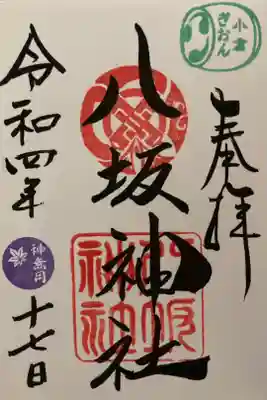 小倉
ぎおん
奉拝
八坂神社
八坂
神社
令和四年
神無月
十七日